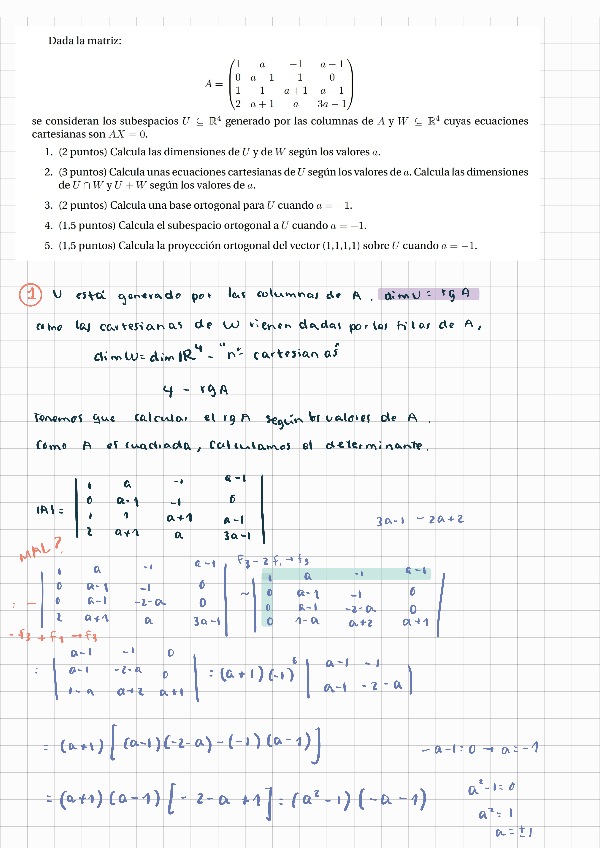 Dada la matriz:
1 a −1 a − 1
0 a 1 1 0
A = 1 1 a + 1 a 1
2 a + 1 a 3a − 1
se consideran los subespacios U ⊆ ℝ⁴ generado por las columnas de A y W ⊆ ℝ⁴ cuyas ecuaciones
cartesianas son AX = 0.
1. (2 puntos) Calcula las dimensiones de U y de W según los valores a.
2. (3 puntos) Calcula unas ecuaciones cartesianas de U según los valores de a. Calcula las dimensiones
de U ∩ W y U + W según los valores de a.
3. (2 puntos) Calcula una base ortogonal para U cuando a = 1.
4. (1,5 puntos) Calcula el subespacio ortogonal a U cuando a = −1.
5. (1,5 puntos) Calcula la proyección ortogonal del vector (1,1,1,1) sobre U cuando a = −1.
① U está generado por las columnas de A. dim U = rg A
como las cartesianas de W vienen dadas por las filas de A,
dim W = dim ℝ⁴ - "nº cartesianas"
4 - rg A
Tenemos que calcular el rg A según los valores de A.
Como A es cuadrada, calculamos el determinante.
1 a -1 a-1
0 a-1 -1 0
|A| = 1 1 a+1 a-1
2 a+1 a 3a-1
3a-1 -2a+2
MAL?
F3 - 2f1 → f3
1 a -1 a-1 1 a -1 a-1
0 a-1 -1 0 0 a-1 -1 0
= - 0 a-1 -2-a 0 ~ 0 a-1 -2-a 0
2 a+1 a 3a-1 0 1-a a+2 a+1
-f3 + f1 → f3
a-1 -1 0
= a-1 -2-a 0 = (a+1)(-1)⁶ a-1 -1
1-a a+2 a+1 a-1 -2-a
= (a+1) [(a-1)(-2-a) - (-1)(a-1)]
-a-1=0 → a=-1
= (a+1)(a-1) [-2-a+1] = (a²-1)(-a-1)
a²-1=0
a²=1
a=±1